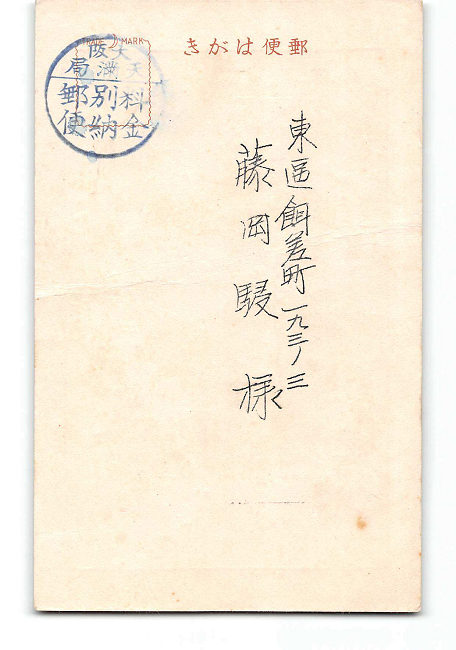 郵便はがき
TRADE MARK
大阪
天満局
料金
別納
郵便
東區餌差町一九三ノ三
藤岡 様